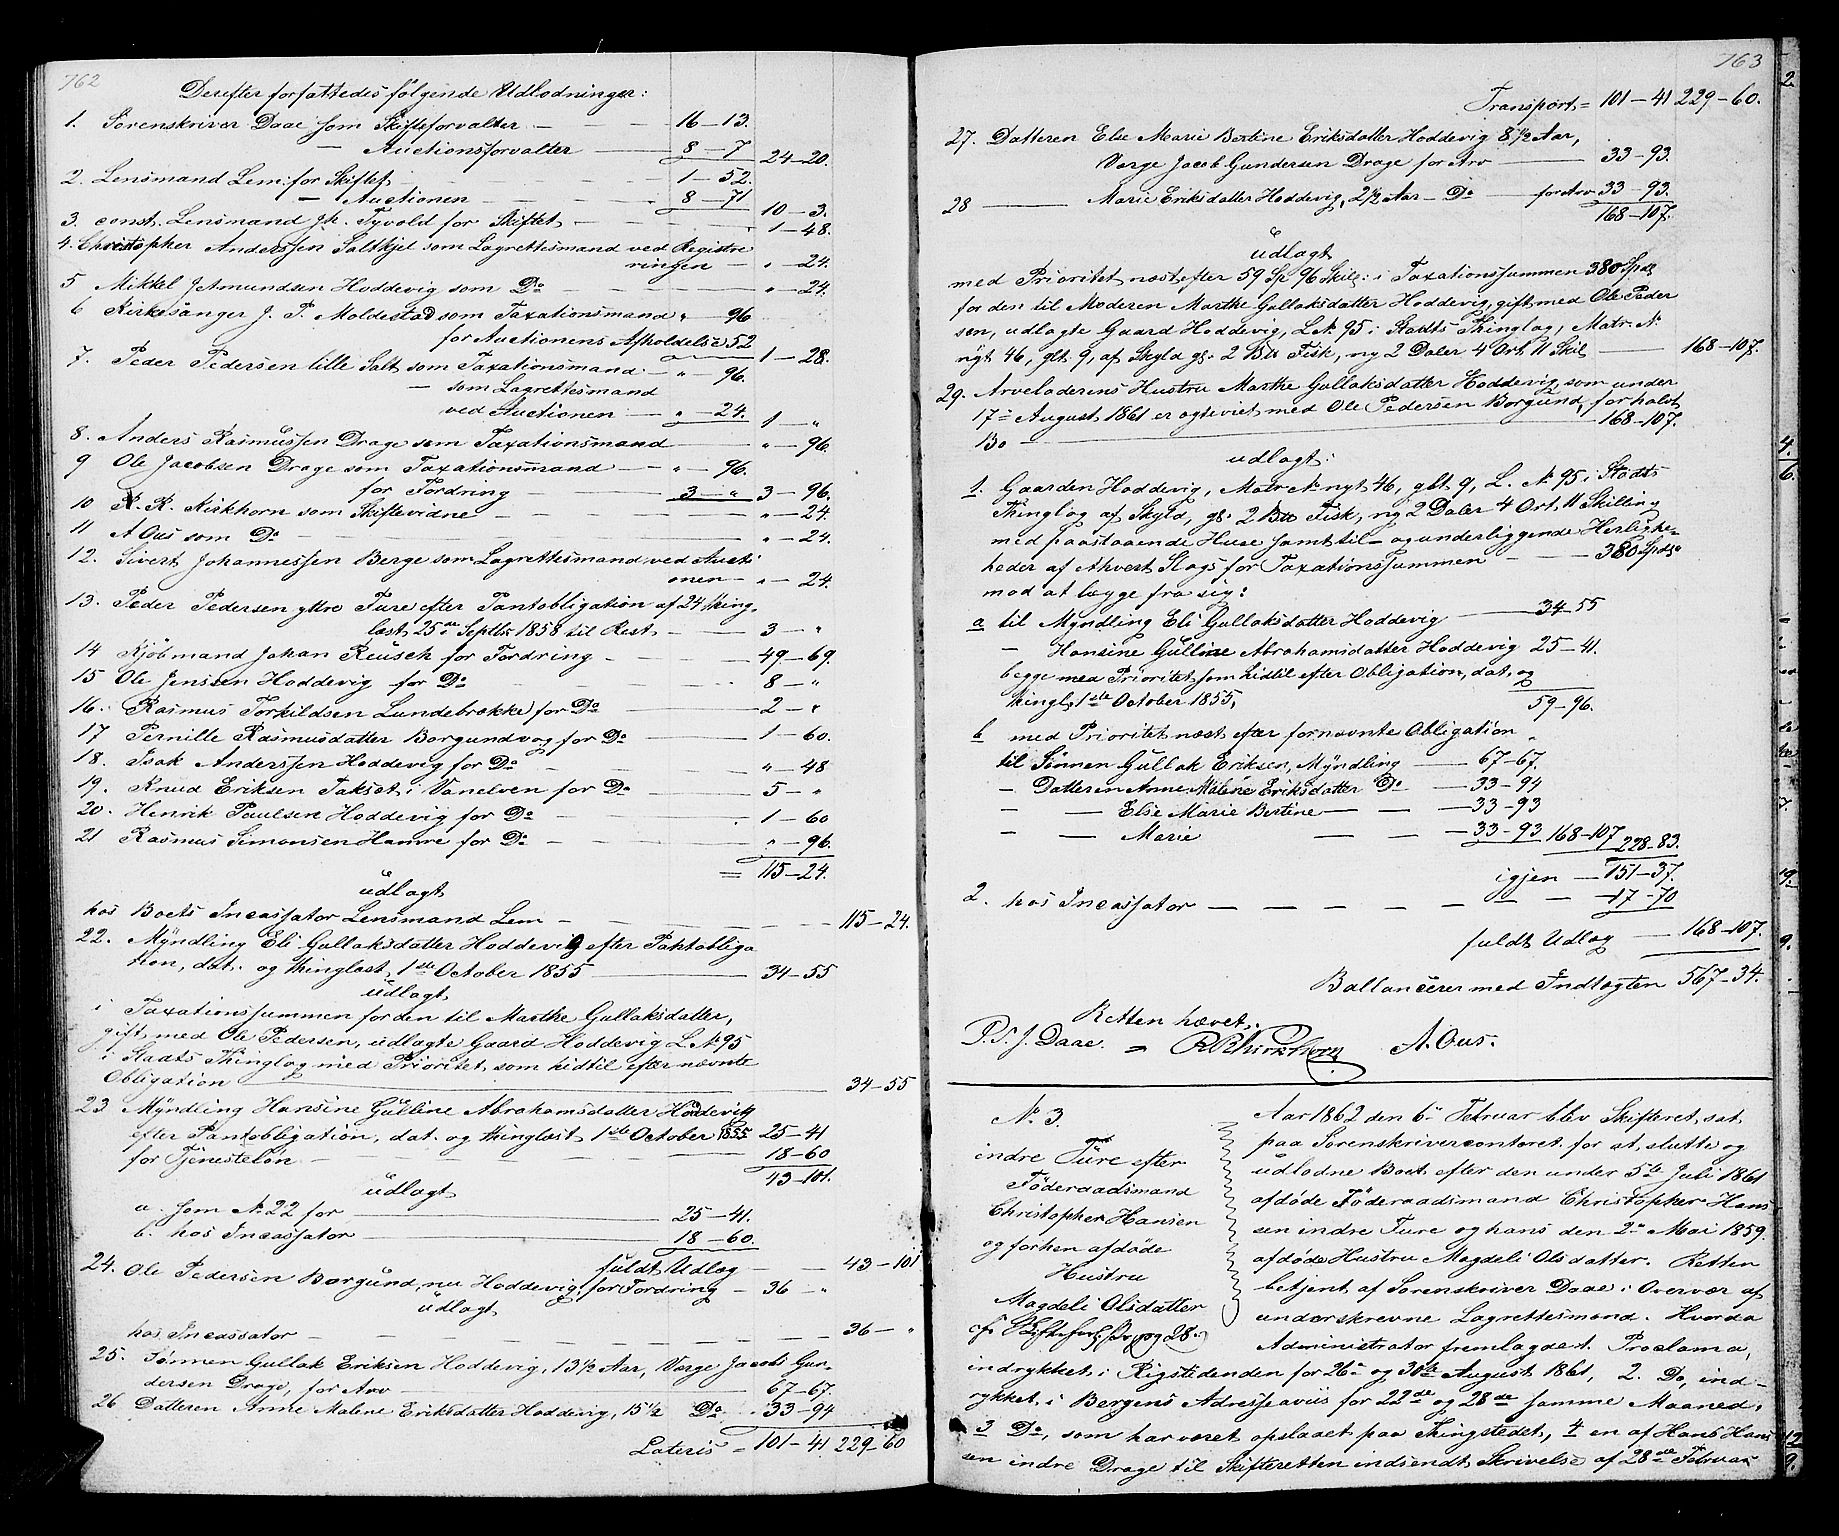 762
Derefter forfattedes følgende Udlodninger:
1. Sorenskriver Daae som Skifteforvalter — 16-13.
— Auctionsforvalter — 8-7 24-20.
2. Lensmand Lem for Skiftet — 1-52.
— Auctionen — 8-71 10-3.
3. const. Lensmand Jh. Tyvold for Skiftet — 1-48.
4. Christopher Anderssen Saltkjel som Lagrettesmand ved Registre
ringen — " - 24.
5 Mikkel JAmundsen Hoddevig som Do — " - 24.
6 Kirkesanger J. P. Moldestad som Taxationsmand " - 96
for Auctionens Afholdelse 52 1-28.
7. Peder Pedersen lille Salt som Taxationsmand — " - 96.
— som Lagrettesmand
ved Auctionen — " - 24. 1 - "
8. Anders Rasmussen Drage som Taxationsmand — " - 96.
9 Ole Jacobsen Drage som Taxationsmand — " - 96.
for Fordring — 3 - " 3-96.
10 R. R. Kirkhorn som Skiftevidne — " - 24.
11 A Ous som Do — " - 24.
12. Sivert Johannessen Berge som Lagrettesmand ved Aucti
onen — " - 24.
13. Peder Pedersen ytre Fure efter Pantobligation af 24 thing-
læst 25de Septbr 1858 til Rest — 3 - "
14 Kjøbmand Johan Reusch for Fordring — 49-69.
15 Ole Jenssen Hoddevig for Do — 8 - "
16. Rasmus Torkildsen Lundebrække for Do — 2 - "
17 Pernille Rasmusdatter Borgundvog for Do — 1-60.
18. Isak Anderssen Hoddevig for Do — " - 48
19. Knud Eriksen Takset i Vanelven for Do — 5 - "
20. Henrik Paulsen Hoddevig for Do — 1-60
21 Rasmus Simonsen Hamre for Do — " - 96.
= 115-24.
udlagt
hos Boets Incassator Lensmand Lem — 115-24.
22. Myndling Eli Gullaksdatter Hoddevig efter Pantobliga
tion, dat. og thinglæst 1ste October 1855 — 34-55
udlagt
i Taxationssummen for den til Marthe Gullaksdatter,
gift med Ole Pedersen, udlagte Gaard Hoddevig L. No 95
i Stadts Thinglag med Prioritet som hidtil efter nævnte
Obligation — 34-55
23 Myndling Hansine Gulline Abrahamsdatter Hoddevig
efter Pantobligation, dat. og thinglæst 1ste October 1855 25-41
for Tjenesteløn — 18-60
43-101.
udlagt
a. som No 22 for — 25-41.
b. hos Incassator — 18-60.
fuldt Udlæg — 43-101
24. Ole Pedersen Borgund, nu Hoddevig, for Fordring — 36 - "
udlagt
hos Incassator — 36 - "
25. Sønnen Gullak Eriksen Hoddevig, 13 1/2 Aar, Værge Jacob Gun-
dersen Drage, for Arv — 67-67.
26 Datteren Anne Malene Eriksdatter Hoddevig, 15 1/2 Do. 33-94
Lateris = 101-41 229-60
763
Transport = 101-41 229-60.
27. Datteren Else Marie Bertine Eriksdatter Hoddevig 8 1/2 Aar,
Værge Jacob Gundersen Drage for Arv — 33-93.
28 — Marie Eriksdatter Hoddevig, 2 1/2 Aar - Do — for Arv 33-93.
168-107.
udlagt
med Prioritet næst efter 59 Sp 96 Skil: i Taxationssummen 380 Spd
for den til Moderen Marthe Gullaksdatter Hoddevig, gift med Ole Peder
sen, udlagte Gaard Hoddevig, L No 95 i Stadts Thinglag, Matr. No
nyt 46, glt 9, af Skyld gl. 2 Btt Fisk, ny 2 Daler 4 Ort 11 Skil — 168-107.
29. Arveladerens Hustru Marthe Gullaksdatter Hoddevig, som under
17de August 1861 er ægteviet med Ole Pedersen Borgund, for halvt
Bo — 168-107.
udlagt:
1. Gaarden Hoddevig, Matr No nyt 46, glt 9, L. No 95 i Stadts
Thinglag af Skyld, gl. 2 Btt Fisk, ny 2 Daler 4 Ort 11 Skilling
med paastaaende Huse samt til- og underliggende Herlighe-
heder af ethvert Slags for Taxationssummen — 380 Spd.
mod at lægge fra sig:
a til Myndling Eli Gullaksdatter Hoddevig — 34-55
— Hansine Gulline Abrahamsdatter Hoddevig 25-41.
begge med Prioritet som hidtil efter Obligation, dat. og
thingl. 1ste October 1855, 59-96.
b med Prioritet næst efter fornævnte Obligation
til Sønnen Gullak Eriksen, Myndling — 67-67.
— Datteren Anne Malene Eriksdatter Do — 33-94
— — Else Marie Bertine — — 33-93
— — Marie — — 33-93 168-107 228-83.
igjen — 151-37.
2. hos Incassator — — — 17-70
fuldt Udlæg — 168-107.
Ballancerer med Indtægten 567-34.
Retten hævet.
P. S. J. Daae. = RRKirkhorn A. Ous.
No 3.
indre Fure efter
Føderaadsmand
Christopher Hansen
og forhen afdøde
Hustru
Magdeli Olsdatter
Aar 1862 den 6te Februar blev Skifteret sat
paa Sorenskrivercontoret for at slutte og
udlodne Boet efter den under 5te Juli 1861
afdøde Føderaadsmand Christopher Hans
sen indre Fure og hans den 2den Mai 1859
afdøde Hustru Magdeli Olsdatter. Retten
betjent af Sorenskriver Daae i Overvær af
underskrevne Lagrettesmænd. Hvorda
Administrator fremlagde 1. Proclama,
indrykket i Rigstidenden for 26de og 30te August 1861, 2. Do, ind-
rykket i Bergens Adresseavis for 22de og 28de samme Maaned.
3 Do, som har været opslaaet paa Thingstedet, 4 en af Hans Hans
sen indre Drage til Skifteretten indsendt Skrivelse af 28de Februar